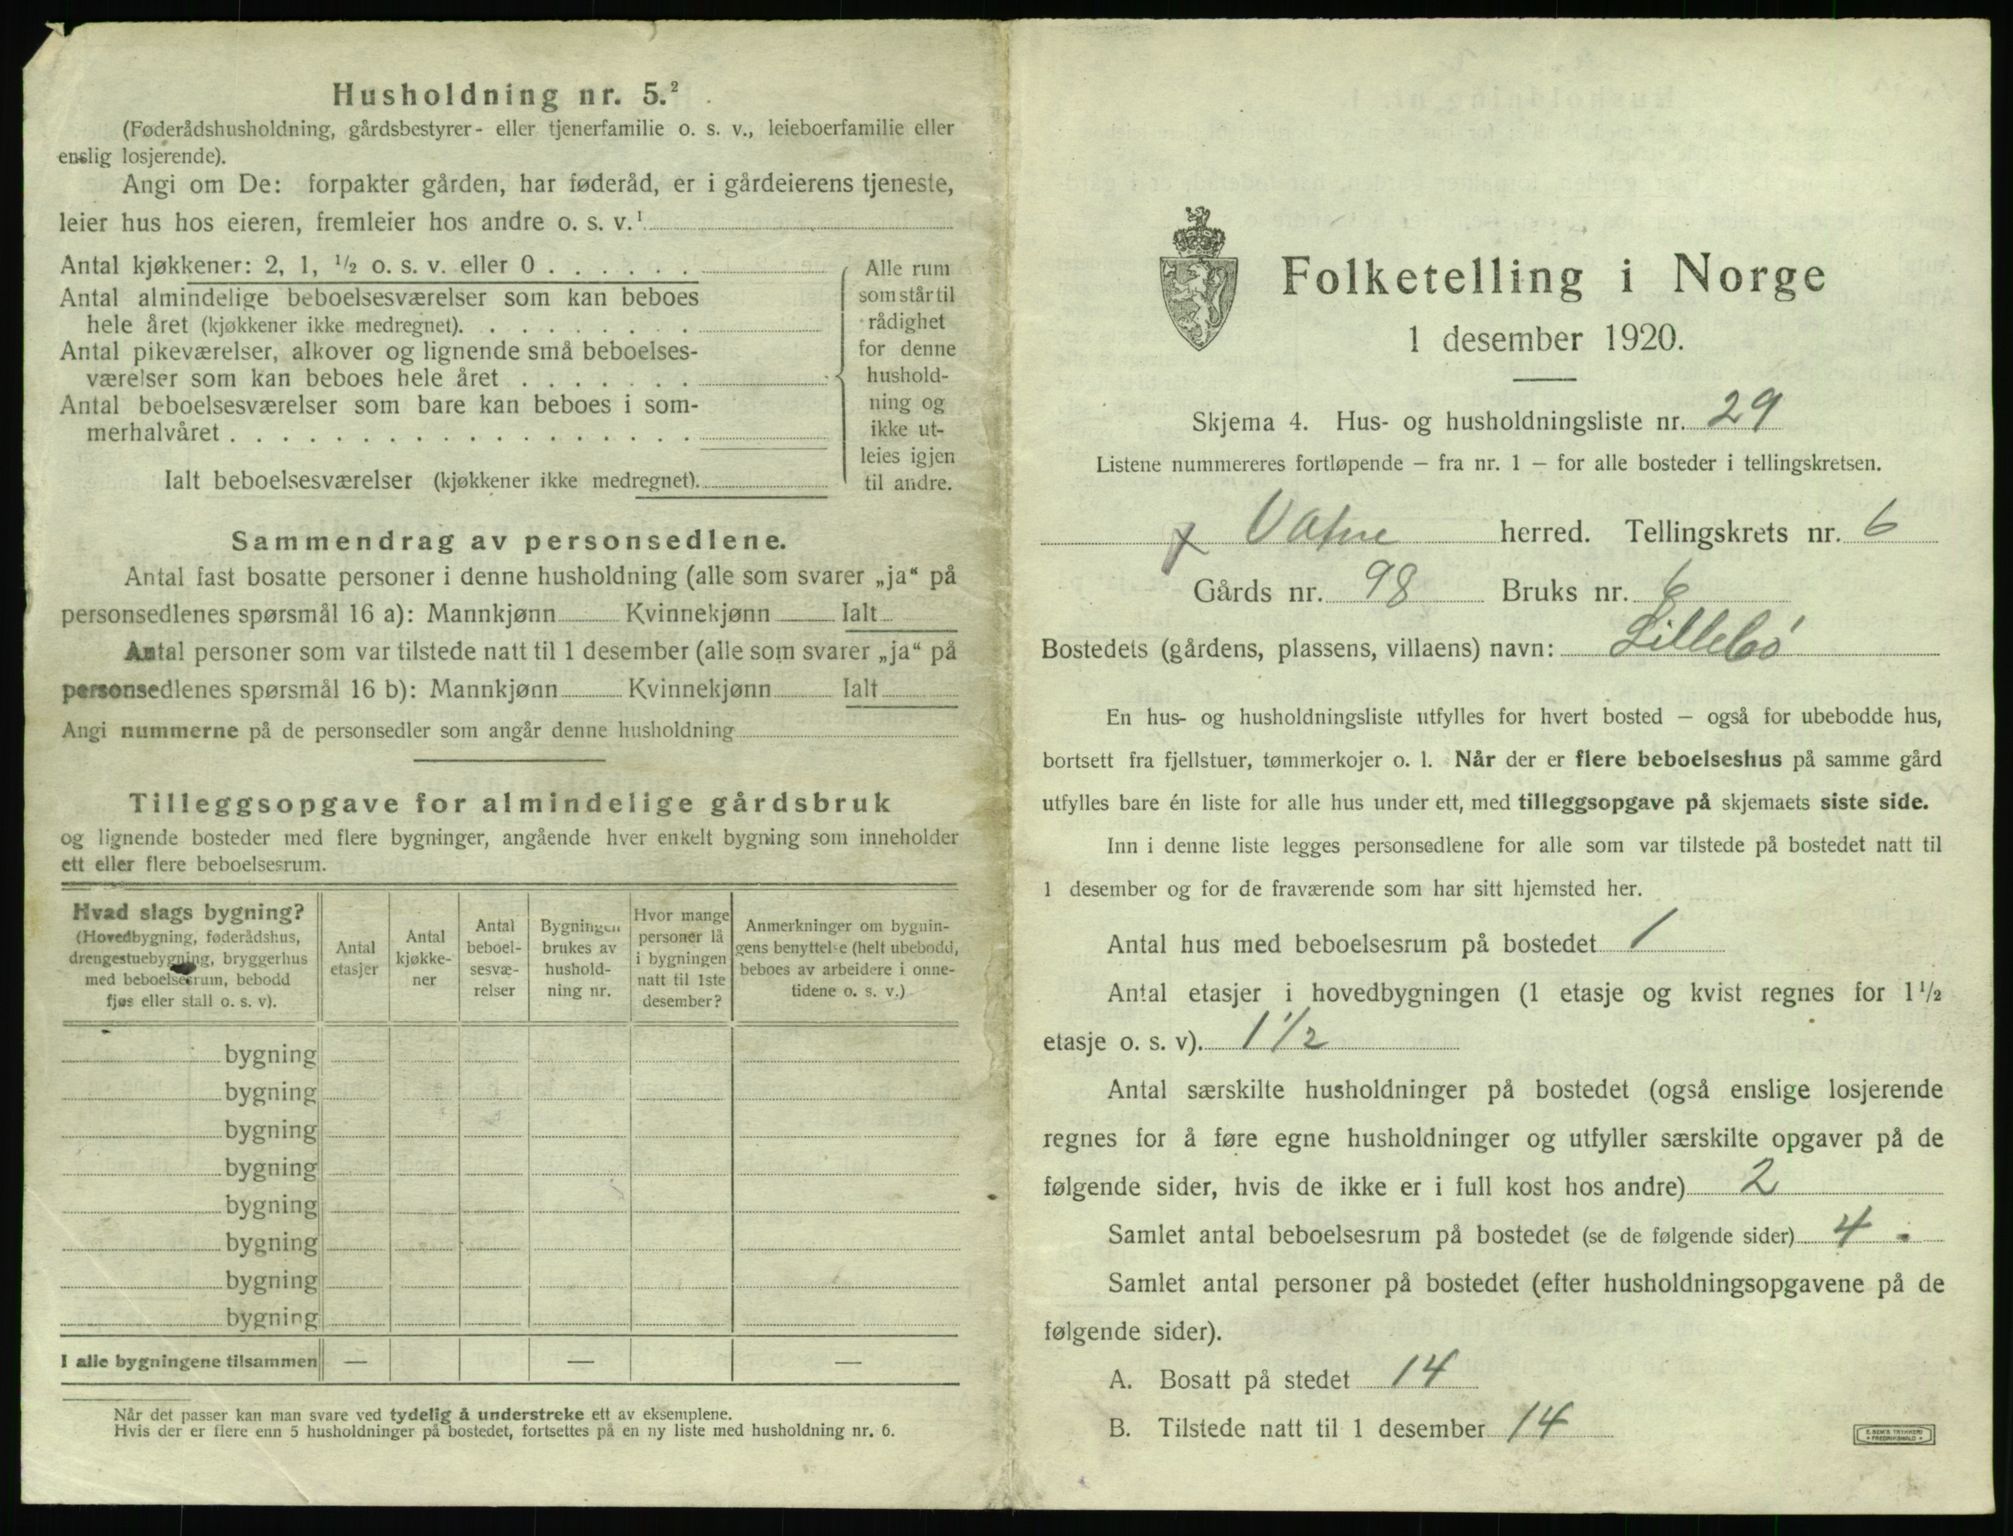 Husholdning nr. 5.²
(Føderådshusholdning, gårdsbestyrer- eller tjenerfamilie o. s. v., leieboerfamilie eller
enslig losjerende).
Angi om De: forpakter gården, har føderåd, er i gårdeierens tjeneste,
leier hus hos eieren, fremleier hos andre o. s. v.¹
Antal kjøkkener: 2, 1, ½ o. s. v. eller 0 . . . . . .
Antal almindelige beboelsesværelser som kan beboes
hele året (kjøkkener ikke medregnet). . . . . . . . .
Antal pikeværelser, alkover og lignende små beboelses-
værelser som kan beboes hele året . . . . . . .
Antal beboelsesværelser som bare kan beboes i som-
merhalvåret . . . . . . . . . . . . . . . . . .
Ialt beboelsesværelser (kjøkkener ikke medregnet).
Alle rum
som står til
rådighet
for denne
hushold-
ning og
ikke ut-
leies igjen
til andre.
Sammendrag av personsedlene.
Antal fast bosatte personer i denne husholdning (alle som svarer „ja“ på
personsedlenes spørsmål 16 a): Mannkjønn Kvinnekjønn Ialt
Antal personer som var tilstede natt til 1 desember (alle som svarer „ja“ på
personsedlenes spørsmål 16 b): Mannkjønn Kvinnekjønn Ialt
Angi nummerne på de personsedler som angår denne husholdning
Tilleggsopgave for almindelige gårdsbruk
og lignende bosteder med flere bygninger, angående hver enkelt bygning som inneholder
ett eller flere beboelsesrum.
Hvad slags bygning?
(Hovedbygning, føderådshus,
drengestuebygning, bryggerhus
med beboelsesrum, bebodd
fjøs eller stall o. s. v).
Antal
etasjer
Antal
kjøkke-
ner
Antal
beboel-
sesvæ-
relser
Bygningen
brukes av
hushold-
ning nr.
Hvor mange
personer lå
i bygningen
natt til 1ste
desember?
Anmerkninger om bygnin-
gens benyttelse (helt ubebodd,
beboes av arbeidere i onne-
tidene o. s. v.)
bygning
bygning
bygning
bygning
bygning
bygning
bygning
bygning
I alle bygningene tilsammen — — —
Når det passer kan man svare ved tydelig å understreke ett av eksemplene.
Hvis der er flere enn 5 husholdninger på bostedet, fortsettes på en ny liste med husholdning nr. 6.
Folketelling i Norge
1 desember 1920.
Skjema 4. Hus- og husholdningsliste nr. 29
Listene nummereres fortløpende — fra nr. 1 — for alle bosteder i tellingskretsen.
x Vatne herred. Tellingskrets nr. 6
Gårds nr. 98 Bruks nr. 6
Bostedets (gårdens, plassens, villaens) navn: Lillebö
En hus- og husholdningsliste utfylles for hvert bosted — også for ubebodde hus,
bortsett fra fjellstuer, tømmerkojer o. l. Når der er flere beboelseshus på samme gård
utfylles bare én liste for alle hus under ett, med tilleggsopgave på skjemaets siste side.
Inn i denne liste legges personsedlene for alle som var tilstede på bostedet natt til
1 desember og for de fraværende som har sitt hjemsted her.
Antal hus med beboelsesrum på bostedet 1
Antal etasjer i hovedbygningen (1 etasje og kvist regnes for 1½
etasje o. s. v). 1 1/2
Antal særskilte husholdninger på bostedet (også enslige losjerende
regnes for å føre egne husholdninger og utfyller særskilte opgaver på de
følgende sider, hvis de ikke er i full kost hos andre) 2
Samlet antal beboelsesrum på bostedet (se de følgende sider) 4
Samlet antal personer på bostedet (efter husholdningsopgavene på de
følgende sider).
A. Bosatt på stedet 14
B. Tilstede natt til 1 desember 14
E. SEM'S TRYKKERI
FREDRIKSHALD